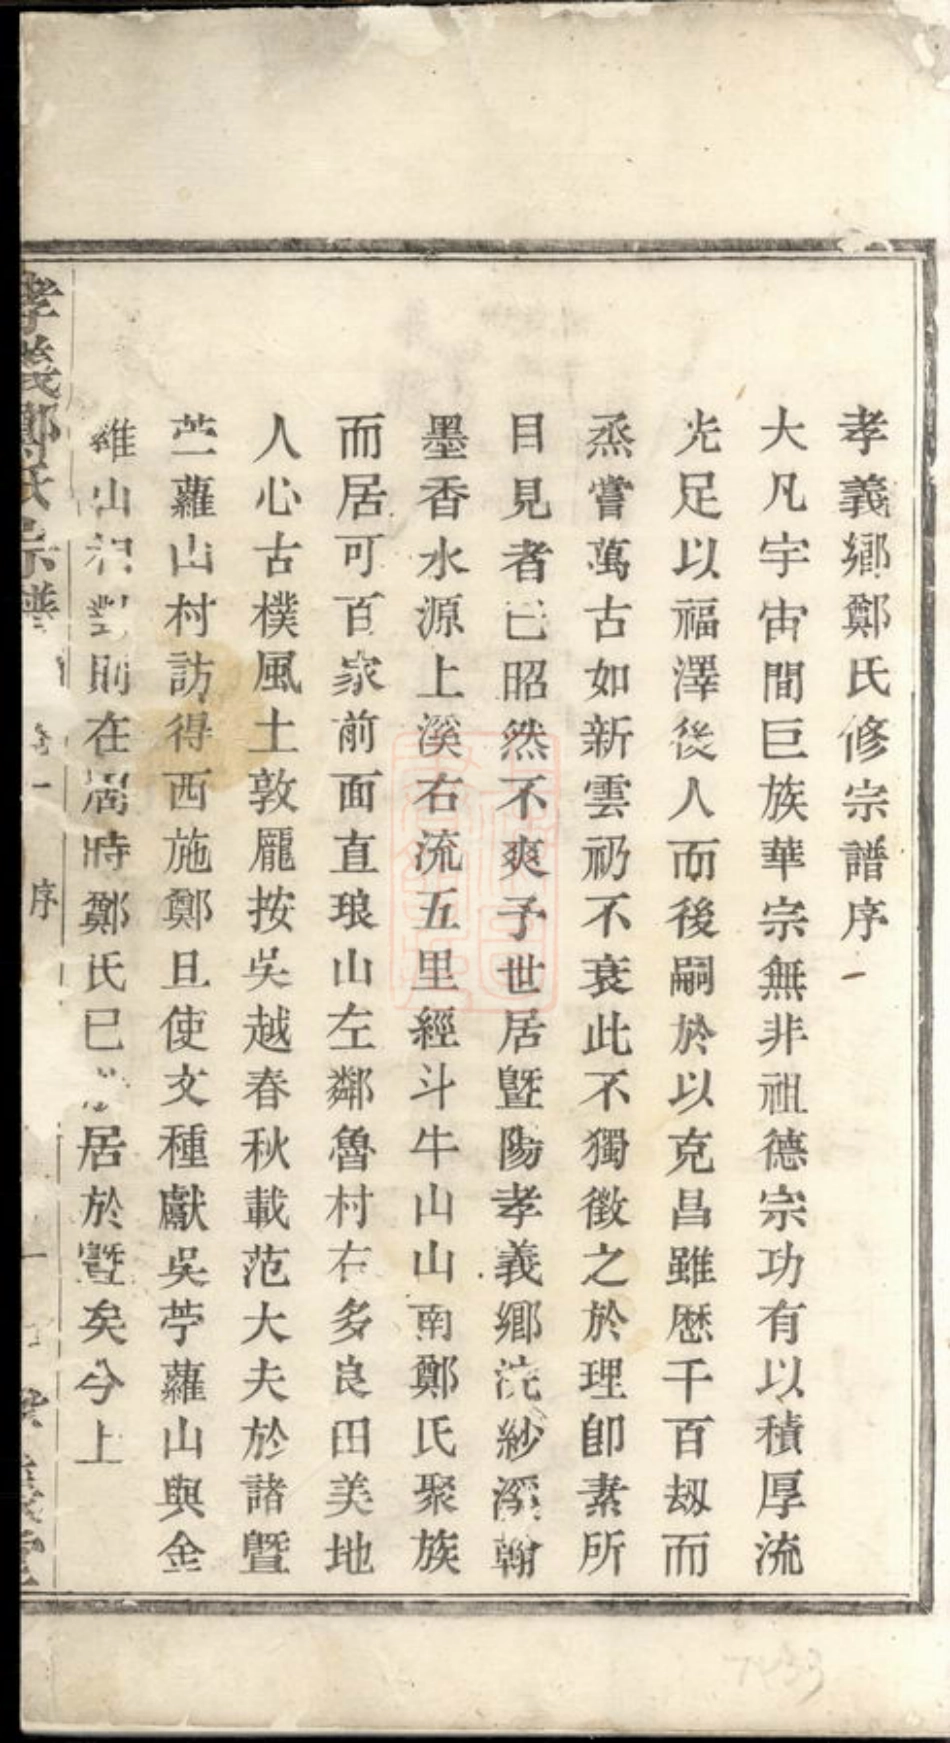 孝義鄉鄭氏修宗譜序
大凡宇宙間巨族華宗無非祖德宗功有以積厚流
光足以福澤後人而後嗣於以克昌雖歷千百刼而
烝嘗萬古如新雲礽不衰此不獨徵之於理卽素所
目見者已昭然不爽予世居暨陽孝義鄉浣紗溪翰
墨香水源上溪右流五里經斗牛山山南鄭氏聚族
而居可百家前面直琅山左鄰魯村右多良田美地
人心古樸風土敦龐按吳越春秋載范大夫於諸暨
苧蘿山村訪得西施鄭旦使文種獻吳苧蘿山與金
雞山相對則在周時鄭氏已居於暨矣今上
孝義鄭氏宗譜 卷一 序 一 孝義堂